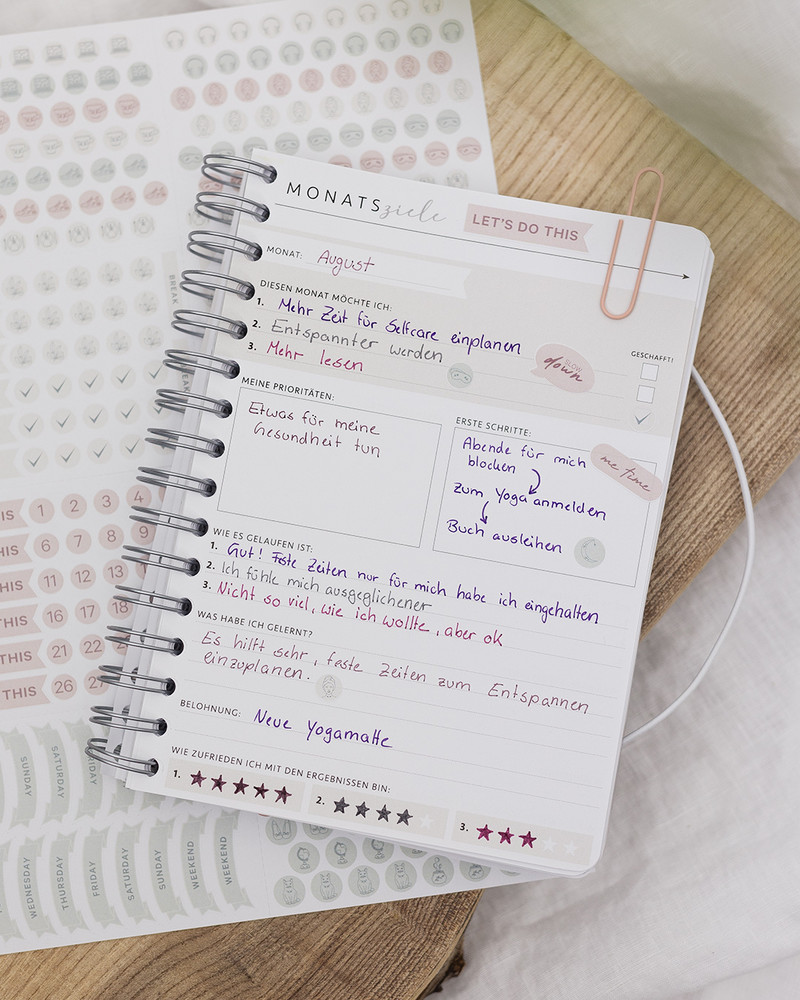 MONATSziele
LET'S DO THIS
MONAT: August
DIESEN MONAT MÖCHTE ICH:
1. Mehr Zeit für Selfcare einplanen
2. Entspannter werden
3. Mehr lesen
SLOW
down
GESCHAFFT!
MEINE PRIORITÄTEN:
Etwas für meine
Gesundheit tun
ERSTE SCHRITTE:
Abende für mich
blocken
me time
zum Yoga anmelden
Buch ausleihen
WIE ES GELAUFEN IST:
1. Gut! Feste Zeiten nur für mich habe ich eingehalten
2. Ich fühle mich ausgeglichener
3. Nicht so viel, wie ich wollte, aber ok
WAS HABE ICH GELERNT?
Es hilft sehr, feste Zeiten zum Entspannen
einzuplanen.
BELOHNUNG: Neue Yogamatte
WIE ZUFRIEDEN ICH MIT DEN ERGEBNISSEN BIN:
1.
2.
3.
BREAK
1 2 3 4
6 7 8 9
THIS 11 12 13
THIS 16 17 18
THIS 21 22
THIS 26
SUNDAY
SATURDAY
FRIDAY
WEDNESDAY
THURSDAY
FRIDAY
SATURDAY
SUNDAY
WEEKEND
WEEKEND